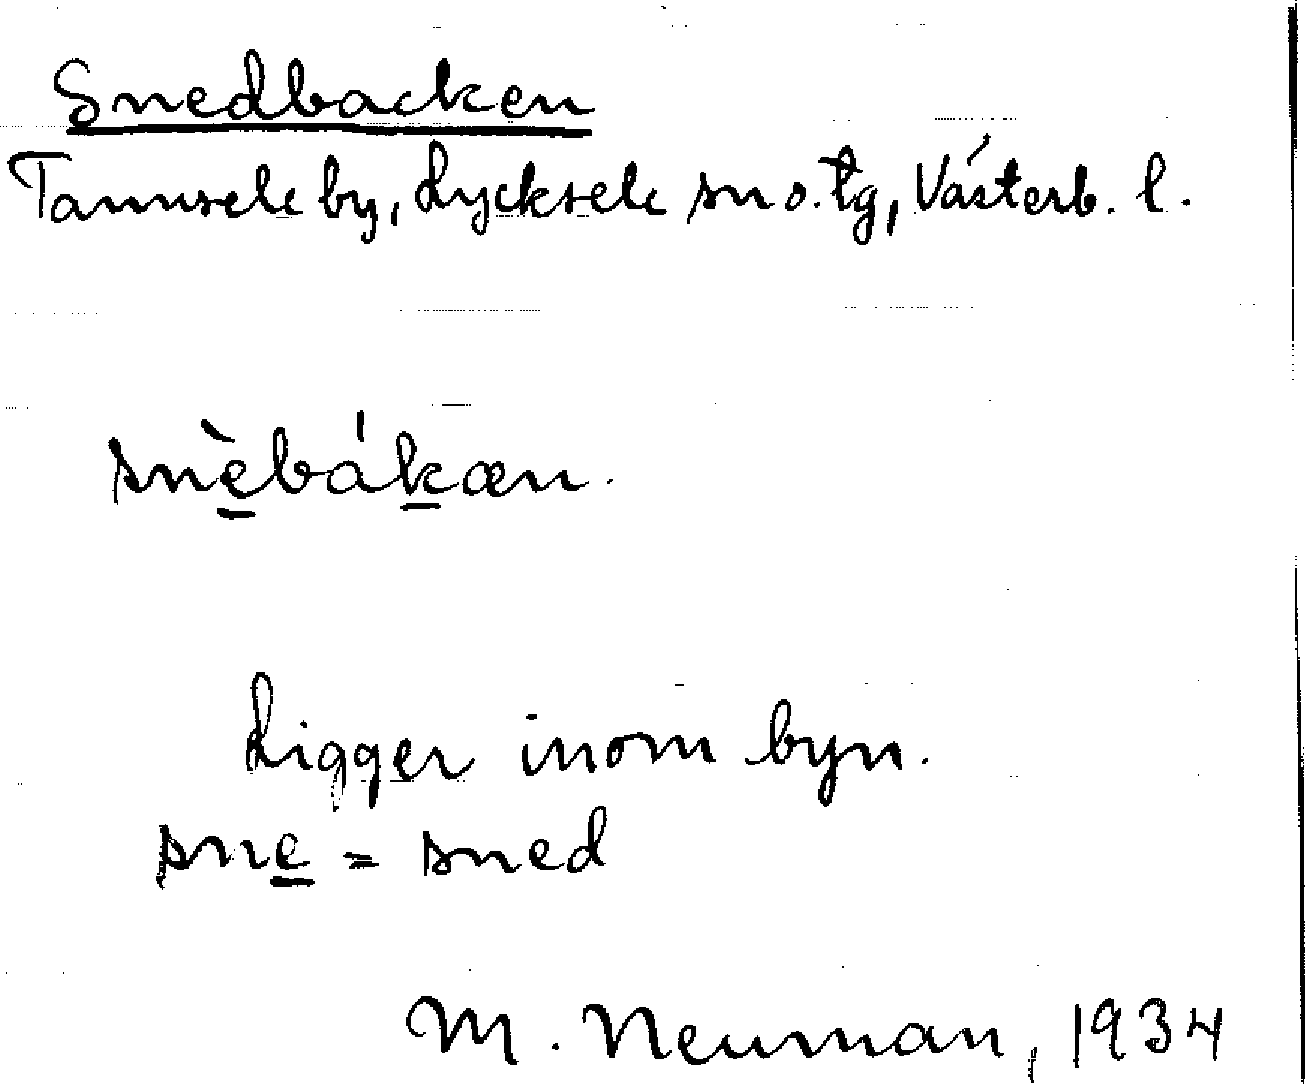 Snedbacken
Tannsele by, Lycksele sn o. tg, Västerb. l.
snèbákæn.
Ligger inom byn.
sne = sned
M. Neuman, 1934